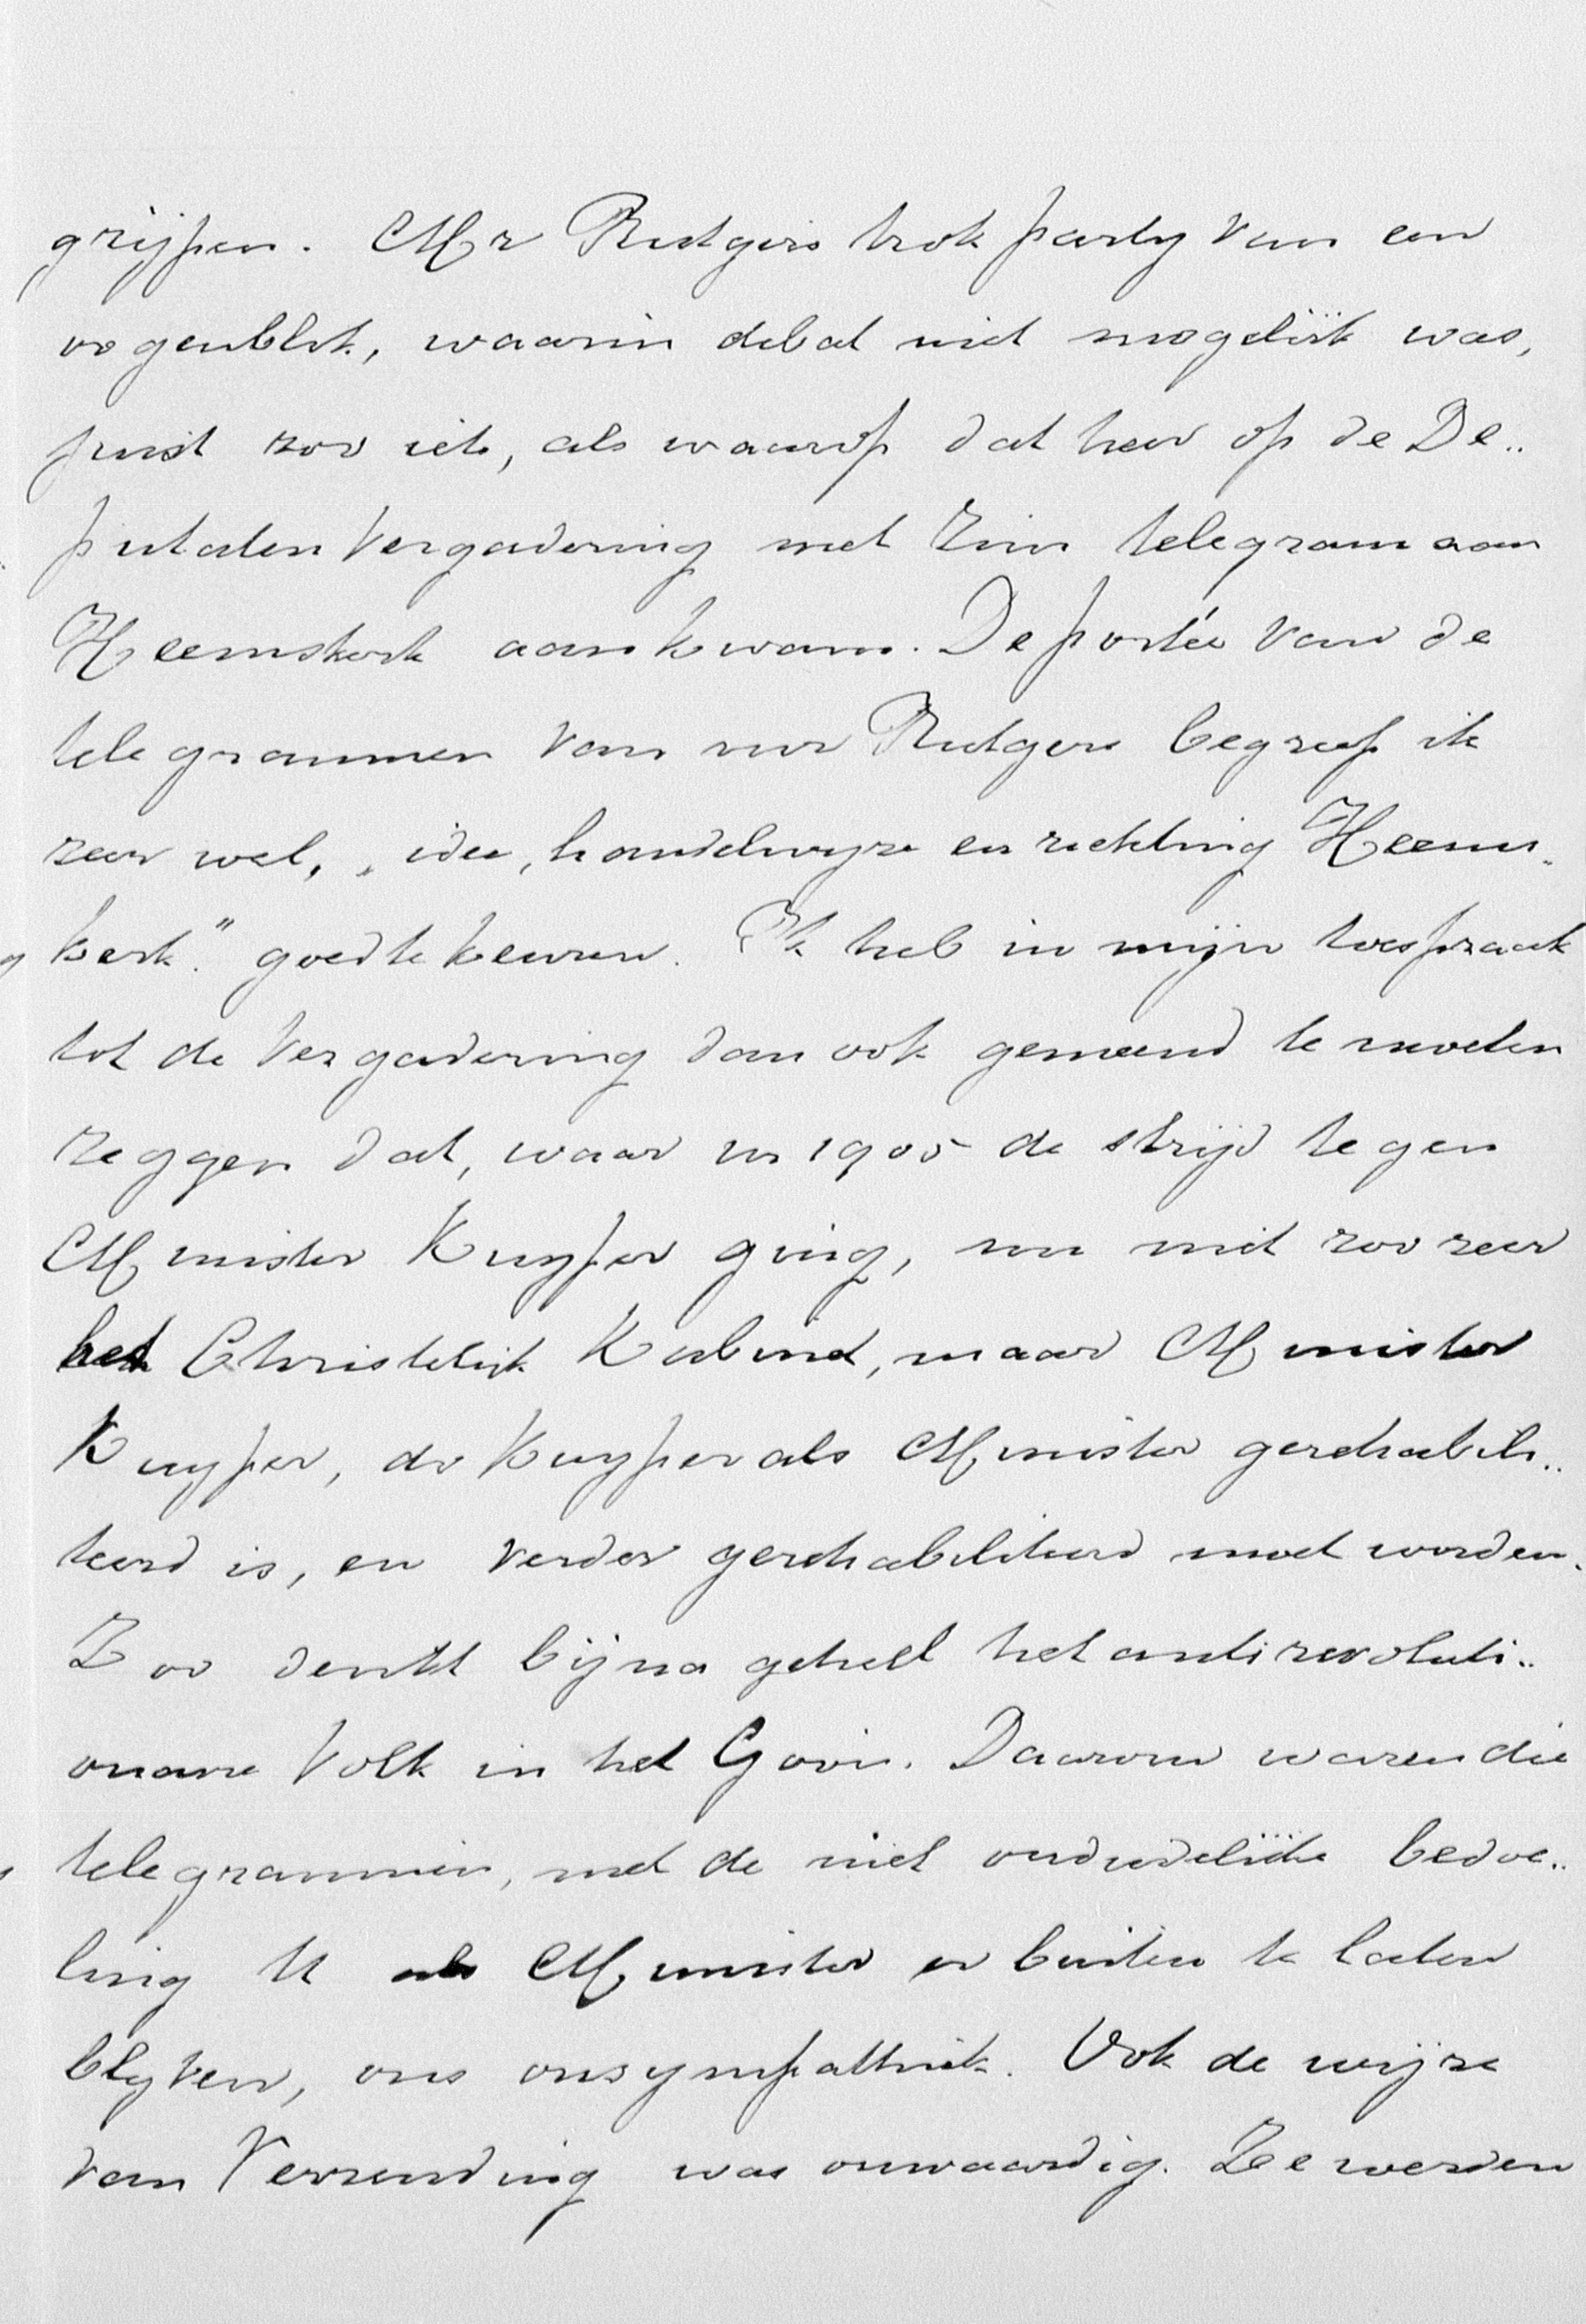 grijpen. Mr Rutgers trok party van een
oogenblik, waarin debat niet mogelijk was,
juist zoo iets, als waarop dat heer op de De..
putaten Vergadering met zijn telegram aan
Heemskerk aankwam. De portée van de
telegrammen van mr Rutgers begreep ik
zeer wel, „idee, handelwyze en richting Heems-
kerk." goed te keuren. Ik heb in mijn toespraak
tot de Vergadering dan ook gemeend te moeten
zeggen dat, waar in 1905 de strijd tegen
Minister Kuyper ging, nu niet zoo zeer
het Christelijk Kabinet, maar Minister
Kuyper, dr Kuyper als Minister gerehabili..
teerd is, en verder gerehabiliteerd moet worden.
Zoo denkt bijna geheel het antirevoluti..
onaire Volk in het Gooi. Daarom waren die
telegrammen, met de niet onduidelijke bedoe..
ling U als Minister er buiten te laten
blyven, ons onsympathiek. Ook de wijze
van Verzending was onwaardig. Ze werden